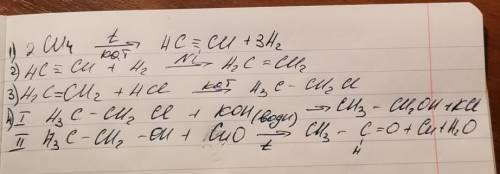 1) 2 CH4 t кат → HC ≡ CH + 3H2
2) HC ≡ CH + H2 Ni → H2C = CH2
3) H2C = CH2 + HCl кат → H3C – CH2 Cl
4) I H3C – CH2 Cl + KOH (водн) → CH3 – CH2OH + KCl
II H3C – CH2 – OH + CuO t → CH3 – C = O + Cu + H2O
H